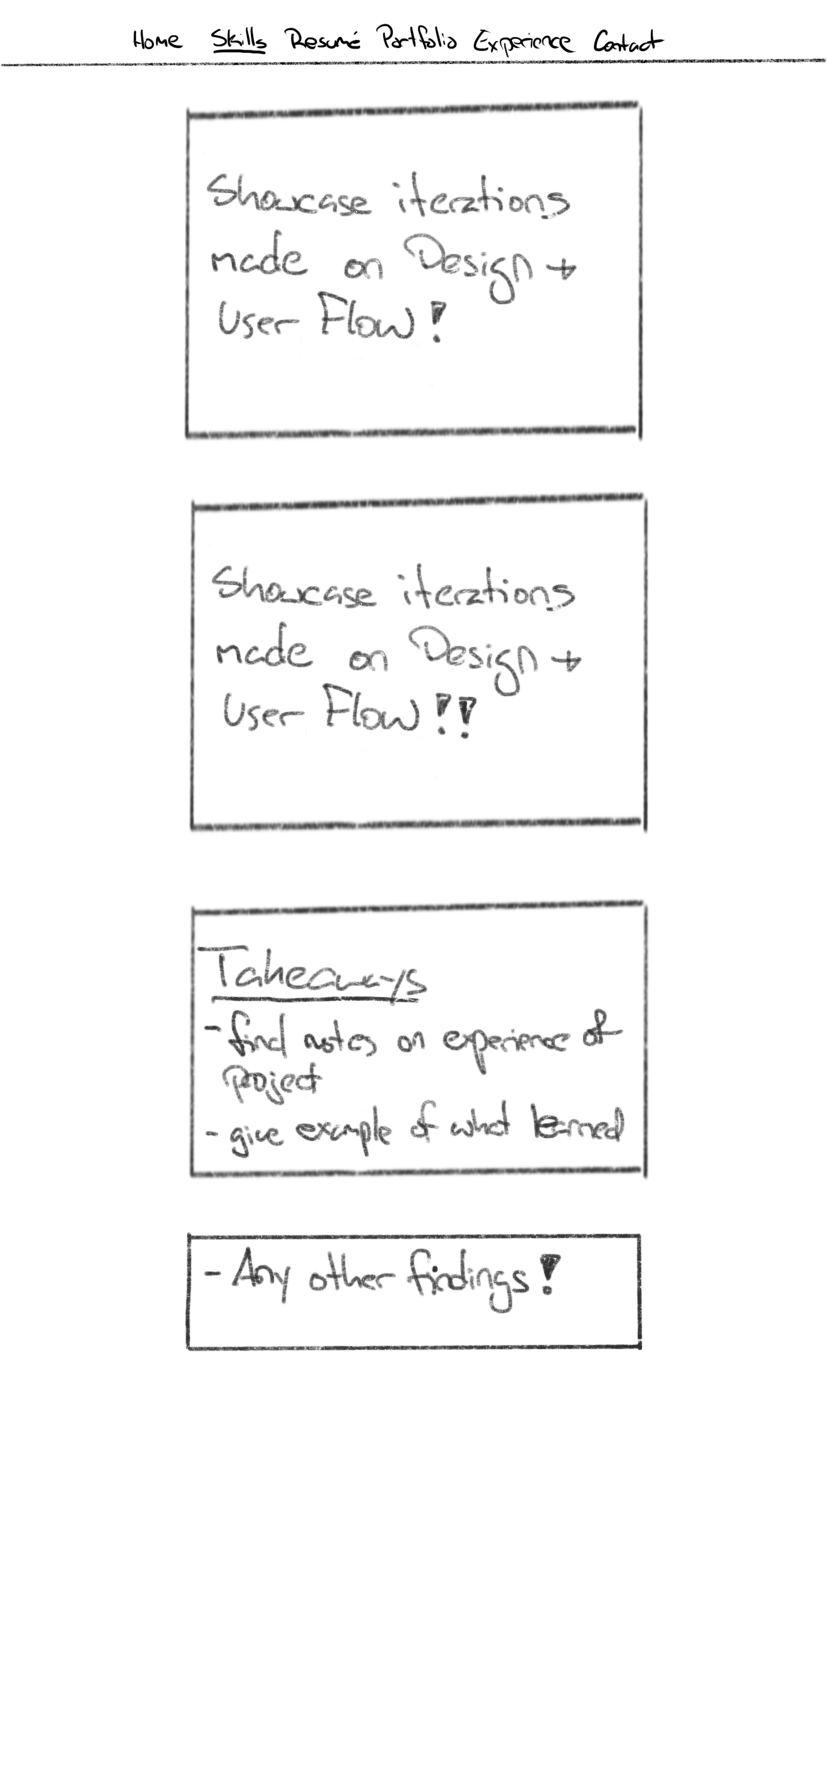 Home Skills Resumé Portfolio Experience Contact
Showcase iterations
made on Design +
User Flow!
Showcase iterations
made on Design +
User Flow!!
Takeaways
- find notes on experience of
project
- give example of what learned
- Any other findings!